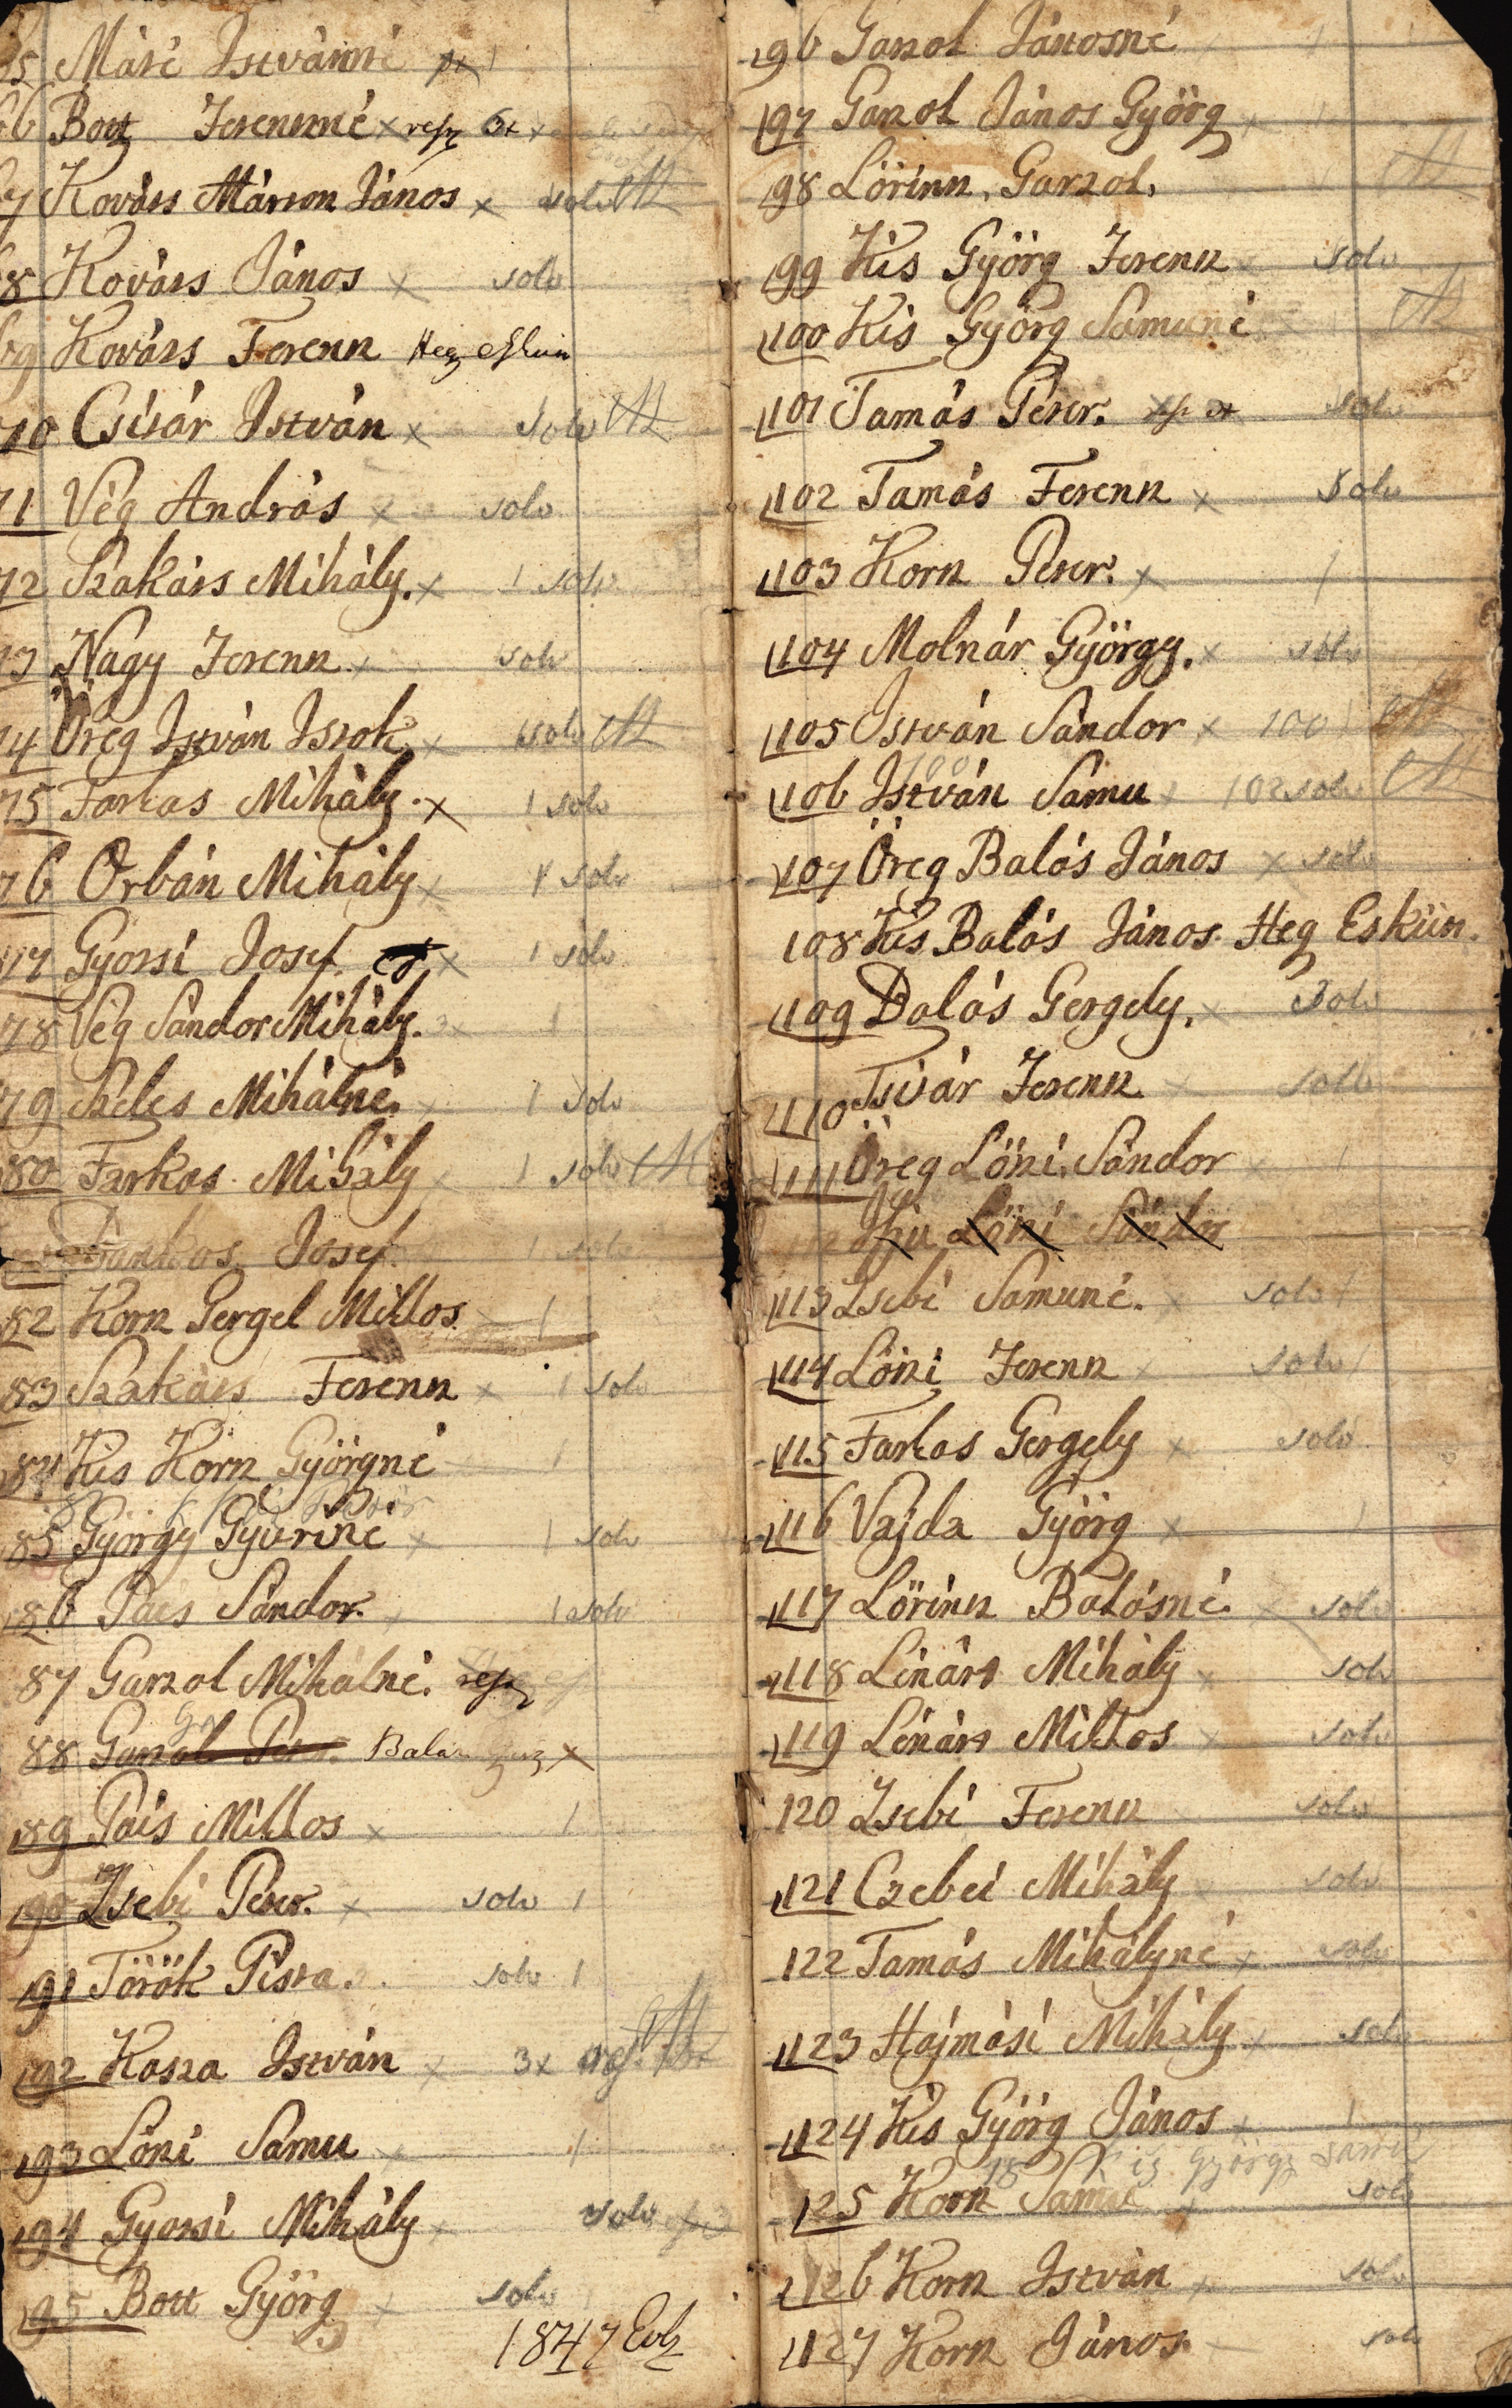 65 Mári Istvánné
66 Bott Ferenzné x resz 6x x
67 Kováts Márton János x solv
68 Kováts János x solv
69 Kováts Ferenz Heg Esküt
70 Csiszár István x solv
71 Vég András x solv
72 Szakáts Mihály. x 1 solv
73 Nagy Ferenz x solv
74 Öreg István Istók x solv
75 Farkas Mihály. x 1 solv
76 Orbán Mihály x 1 solv
77 Gyorsi Josef. x 1 solv
78 Vég Sándor Mihály. x 1
79 Szeles Mihálné. 1 solv
80 Farkas Mihály x 1 solv
Josef. 1 solv
82 Korn Gergel Miklos 1
83 Szakáts Ferenz x 1 solv
84 Kis Korn Györgné 1
85 György Gyuriné x 1 solv
86 Pais Sándor. 1 solv
87 Garzol Mihálné. resz
88 Garzol Peter. x
89 Pais Miklos x 1
90 Zsebi Peter. x solv 1
91 Török Pista. solv 1
92 Kasza István x 3x
93 Löni Samu x 1
94 Gyorsi Mihály x solv
95 Bott Györg x solv
1847
96 Garzol Jánosné 1
97 Garzol János Györg x
98 Lörinz. Garzol.
99 Kis Györg Ferenz solv
100 Kis Györg Samuné
101 Tamás Peter. solv
102 Tamás Ferenz x solv
103 Korn Peter. x 1
104 Molnár György. x solv
105 István Sándor x 100 1
106 István Samu x 102 solv
107 Öreg Balás János x solv
108 Kis Balás János Heg Esküt.
109 Balás Gergely. x solv
110 Tsiszár Ferenz x solv
111 Öreg Löni Sándor x 1
Ifiu Löni Sándor
113 Zsebi Samuné. x solv 1
114 Löni Ferenz x solv 1
115 Farkas Gergely x solv
116 Vajda Györg x 1
117 Lörinz Balásné. x solv
118 Lénárt Mihály x solv
119 Lénárt Miklos x solv
120 Zsebi Ferenz solv
121 Czebei Mihály solv
122 Tamás Mihályné x solv
123 Hajmási Mihály x solv
124 Kis Györg János x 1
Kis György
125 Korn Samu x solv
126 Korn István x solv
127 Korn János. solv